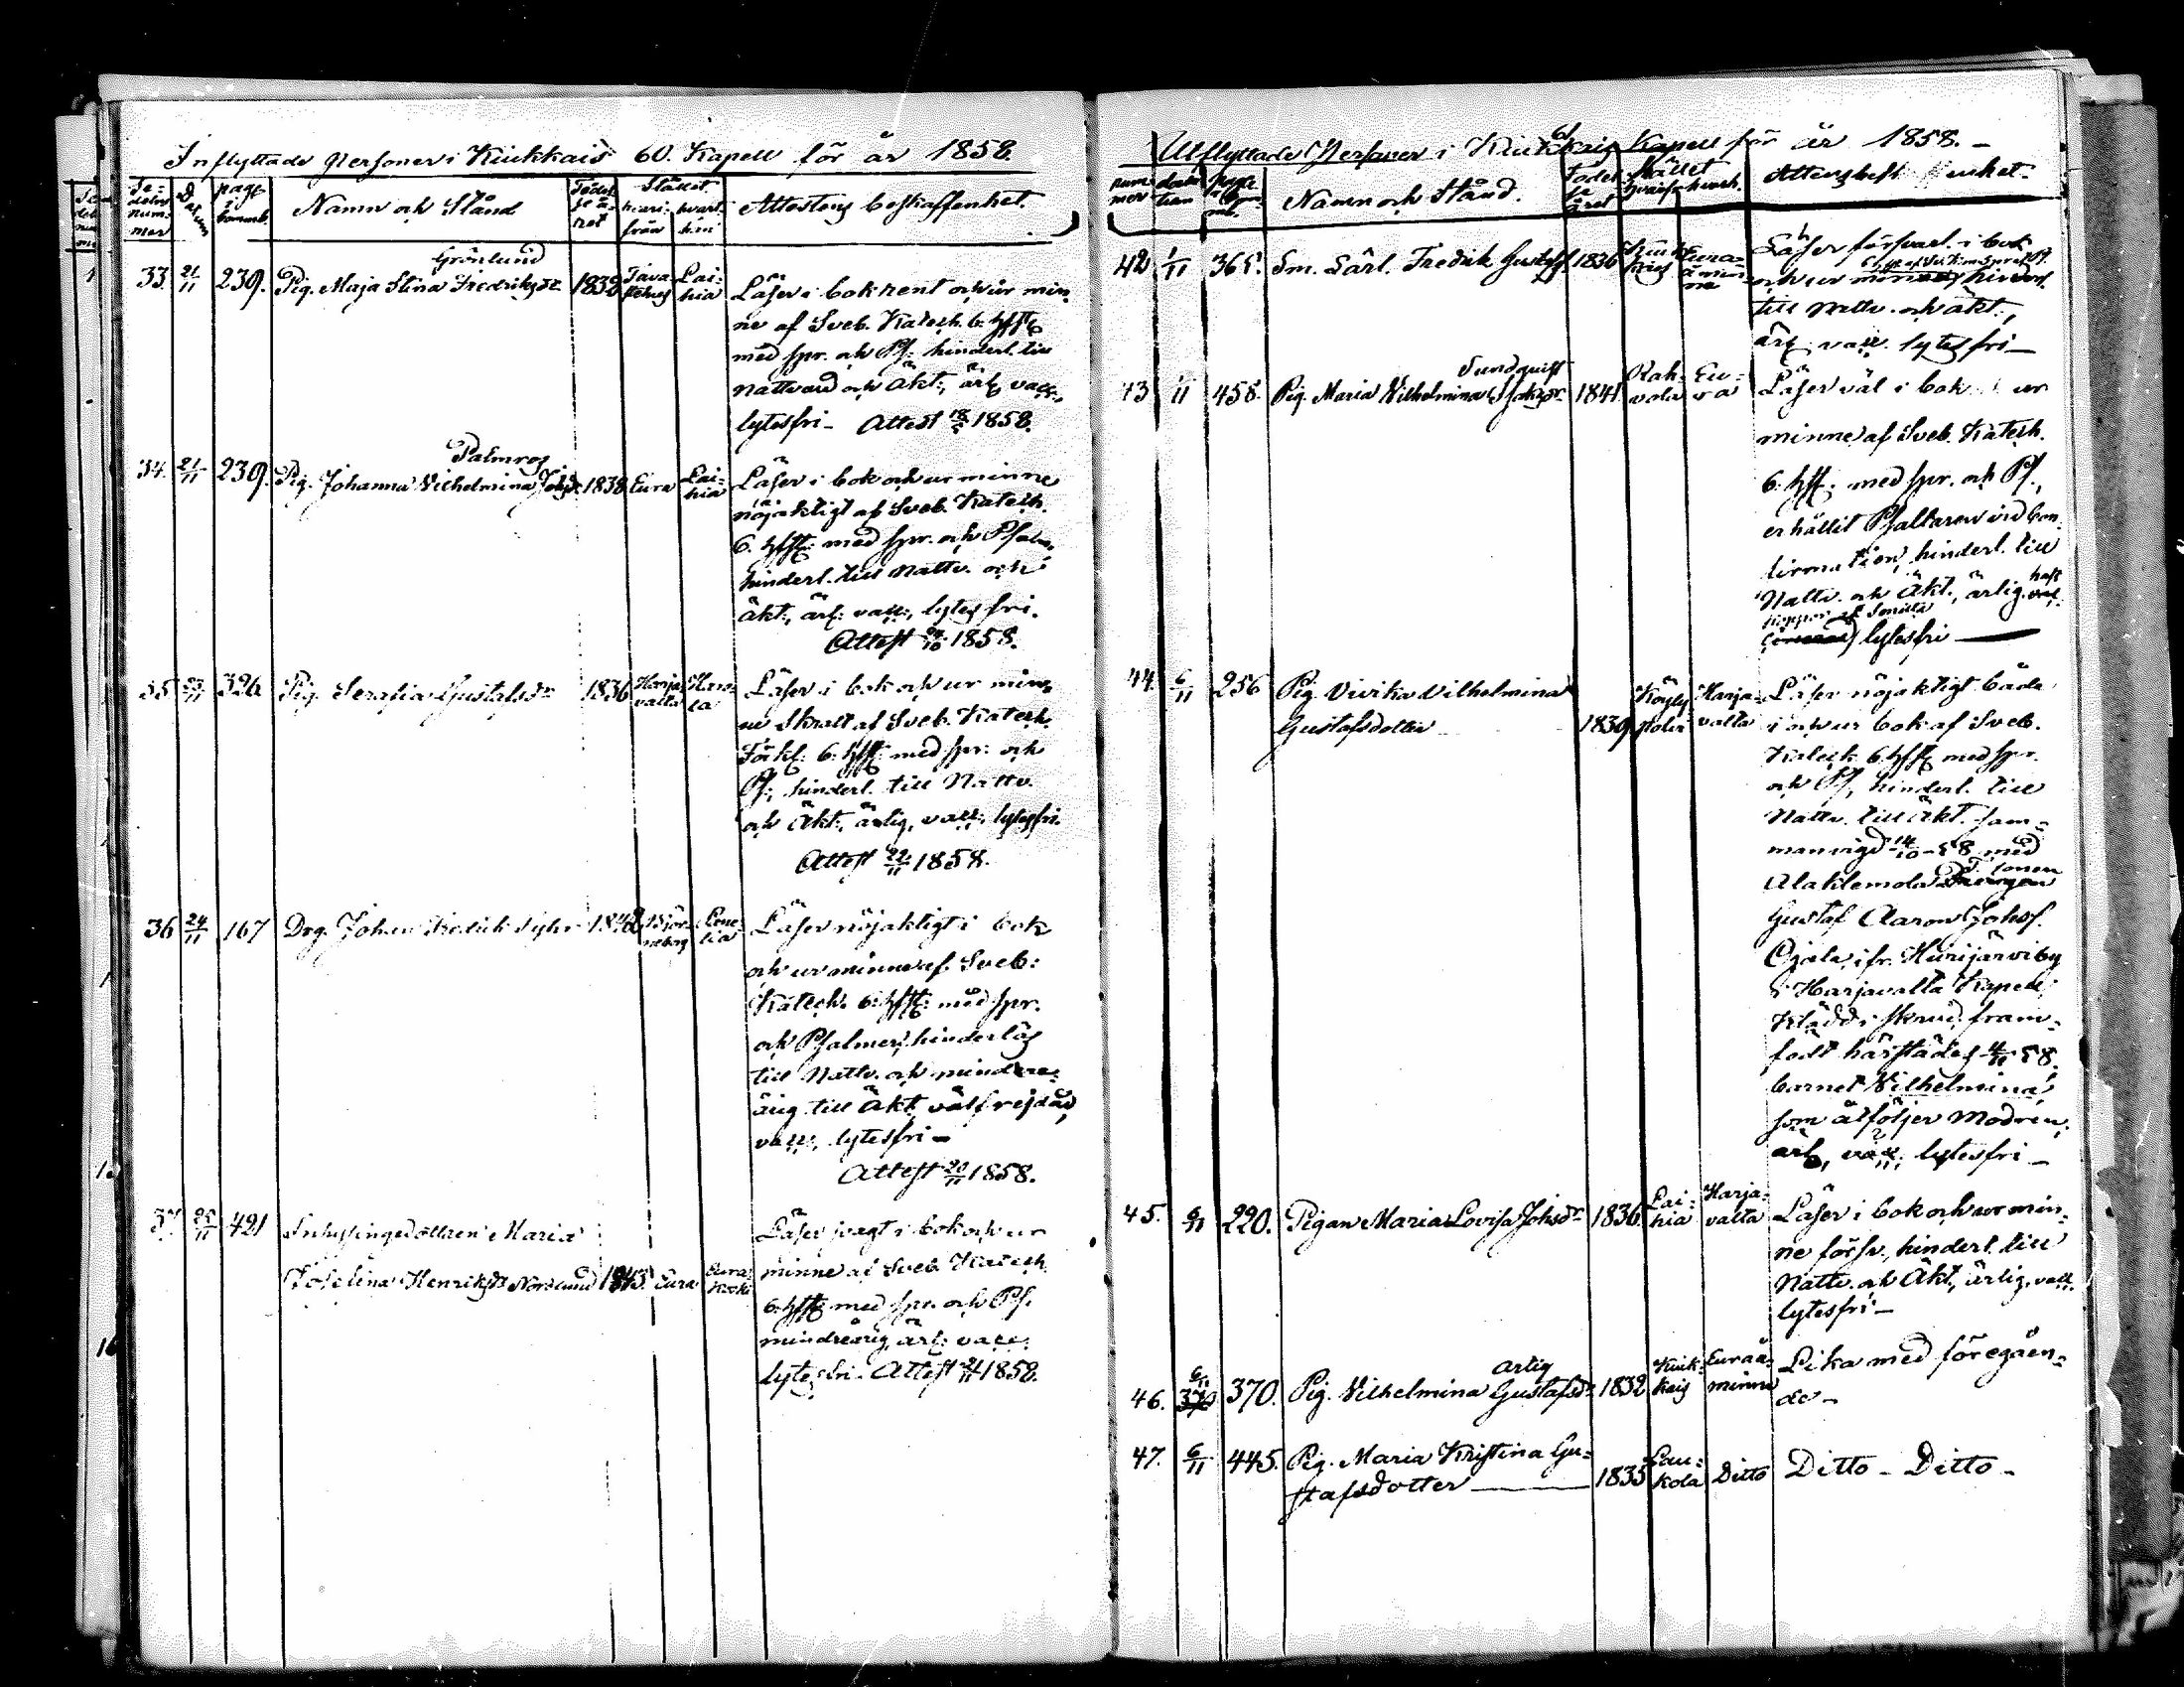 Inflyttade Personer i Kiukkais 60. Kapell för år 1858.
Se-
delns
num-
mer
Datum
page
i
kommb.
Namn och Stånd
Född-
se å-
ret
Stället
hvari-
från
hvart-
hän
Attestens beskaffenhet.
33. 21/11 239. Pig. Maja Stina Fredriksdr Grönlund 1838 Tava-
stehus Lai-
hia
Läser i bok rent och ur min-
ne af Sveb. Katech. 6. hfst
med spr. och Ps: hinderl. till
Nattvard och Äkt:, ärl vacc.,
lytesfri – Attest 1858.
34. 21/11 239. Pig. Johanna Vilhelmina Johsdr Palmros 1838 Eura Lai-
hia
Läser i bok och ur minne
nöjaktigt af Sveb. Katech.
6. hfst: med spr. och Psalm,
hinderl. till Nattv. och
äkt:, ärl: vacc:, lytes fri.
Attest 1858.
35 23/11 326 Pig. Serafia Gustafsdr 1836 Harja-
valta
Läser i bok och ur min-
ne skralt af Sveb. Katech.
Förkl: 6. hfst: med spr: och
Ps:, hinderl. till Nattv.
och Äkt:, ärlig, vacc:, lytesfri.
Attest 22/11 1858.
36 24/11 167 Drg. Johan Fredrik 1842 Björ-
neborg
Läser nöjaktigt i bok
och ur minne af Sveb:
Katech. 6. hfst: med spr.
och Psalmer, hinderlös
till Nattv. och mindre-
årig till Äkt. välfrejdad,
vacc:, lytesfri –
Attest 20/11 1858.
37. 25/11 421 Inhysingedottren Maria
Josefina Henriksdr Norlund 1843 Eura Eura-
Läser svagt i bok och ur
minne af Sveb. Katech.
6. hfst: med spr. och Ps.
mindreårig, ärl: vacc:
lytesfri – Attest 1858.
61
Utflyttade Personer i Kiukkais Kapell för år 1858. –
num-
mer
page
Namn och Stånd.
Födel-
se
året
Stället
hvarifr.
hvarth.
Attestens besk enhet.
42 1/11 365. Sm. Särl. Fredrik Gustafs. 1836 Kiuk-
kais Eura-
åmin-
ne
Läser försvarl. i bok
och ur minne hinderl.
till Nattv. och äkt.,
ärl. vacc. lytesfri –
43 1/11 458. Pig. Maria Vilhelmina Isaksdr Sundqvist 1841 Rah-
vola Eu-
ra
Läser väl i bok ur
minne af Sveb. Katech.
6. hfst: med spr. och Ps.,
erhållit Psaltaren vid Con-
firmation, hinderl. till
Nattv. och Äkt., ärlig. haft
koppor lytesfri –
44. 6/11 256 Pig. Vivika Vilhelmina
Gustafsdotter 1839 Köyly-
polvi Harja-
valta
Läser nöjaktigt både
i och ur bok af Sveb.
Katech. 6. hfst med spr.
och Ps, hinderl. till
Nattv. till äkt. sam-
manvigd 14/10 – 58 med
Gustaf Aaron Johss.
Ojala, ifr. Hiirijärvi by
i Harjavalta Kapell,
Klädd i skrud, fram-
födt härstädes 4/11 58.
barnet Vilhelmina
som åtföljer Modren,
ärl, vacc., lytesfri –
45. 6/11 220. Pigan Maria Lovisa Johsdr 1836. Lai-
hia Harja-
valta
Läser i bok och ur min-
ne försv., hinderl. till
Nattv. och Äkt, ärlig, vacc.
lytesfri –
46. 6/11 370. Pig. Vilhelmina Gustafsdr 1832 Kiuk-
kais Euraå-
minne
Lika med föregåen-
de –
47. 6/11 445. Pig. Maria Kristina Gu-
stafsdotter 1835 Lau-
kola Ditto Ditto – Ditto –